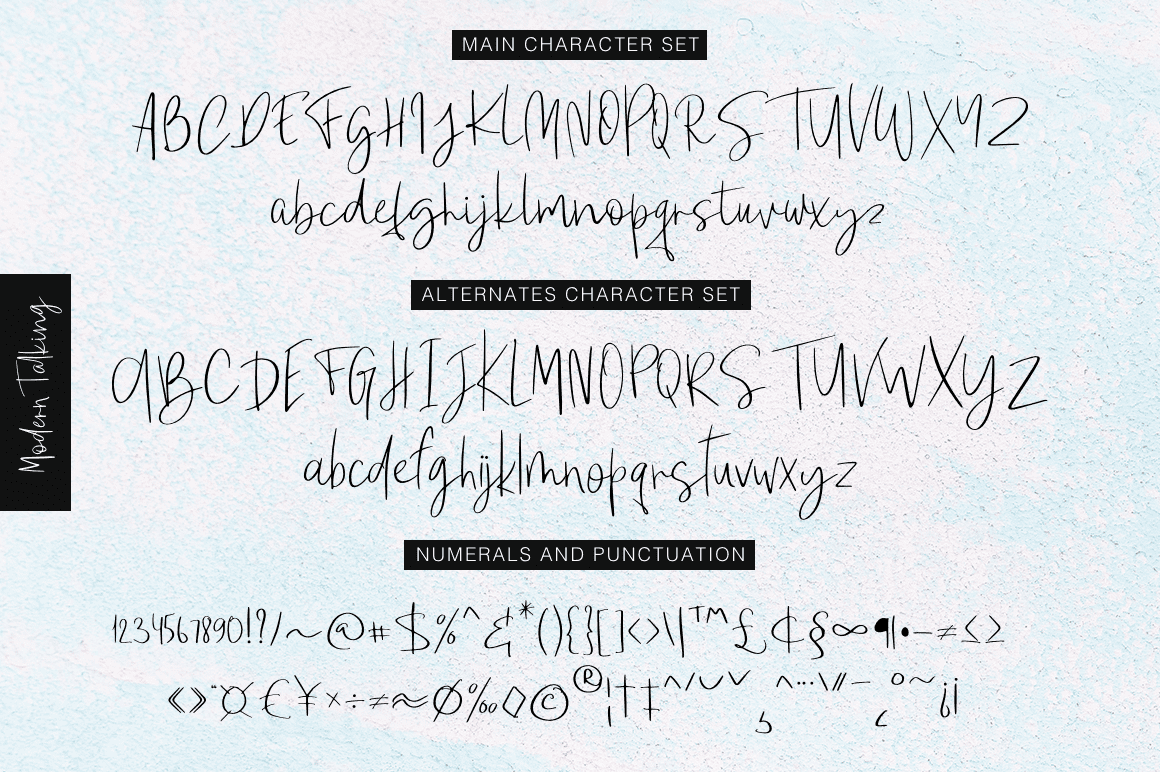 MAIN CHARACTER SET
ABCDEFGHIJKLMNOPQRSTUVWXYZ
abcdefghijklmnopqrstuvwxyz
ALTERNATES CHARACTER SET
ABCDEFGHIJKLMNOPQRSTUVWXYZ
abcdefghijklmnopqrstuvwxyz
Modern Talking
NUMERALS AND PUNCTUATION
1234567890!?/~@#$%^&*(){}[]<>\|™£¢§∞¶|•–≠≤≥
«»¨¤€¥×÷≠≈Ø‰◊©®¦†‡^/˘ˇ ^¨\˝¯ °~¡¡
¸ ˛